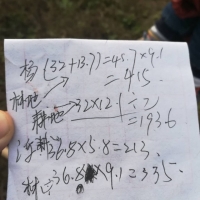 杨(32+13.7)=45.7×9.1
=415
林地
耕地 32×12.1÷2
=193.6
36.8×5.8=213
林口36.8×9.1=335